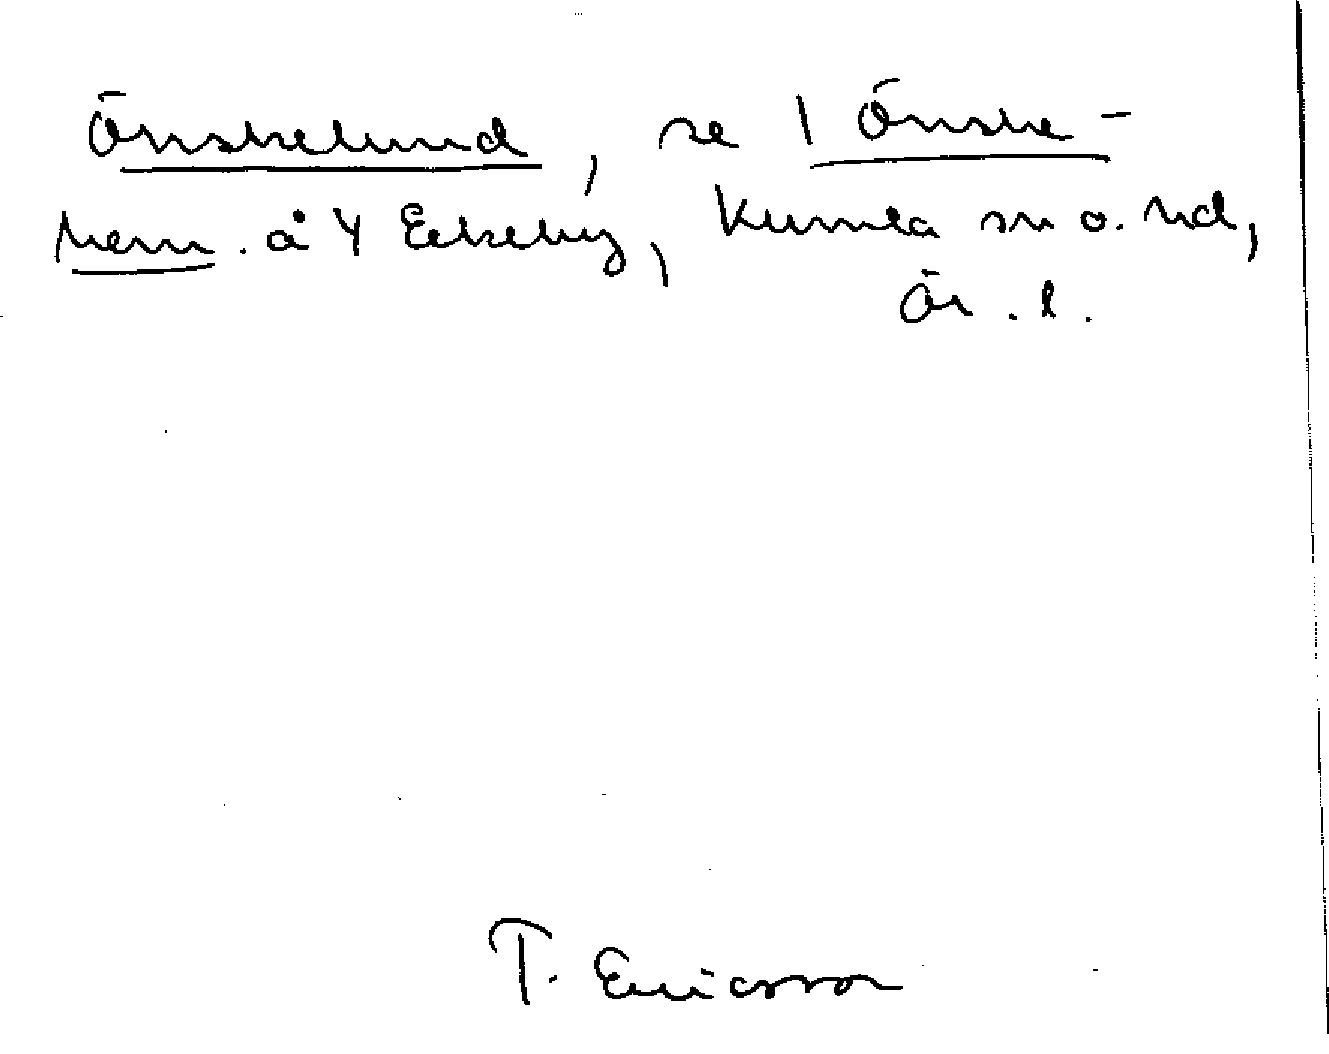 Önskelund, se 1 Önske-
hem. å 4 Ekeby, Kumla sn o. hd,
Ör. l.
T. Ericsson